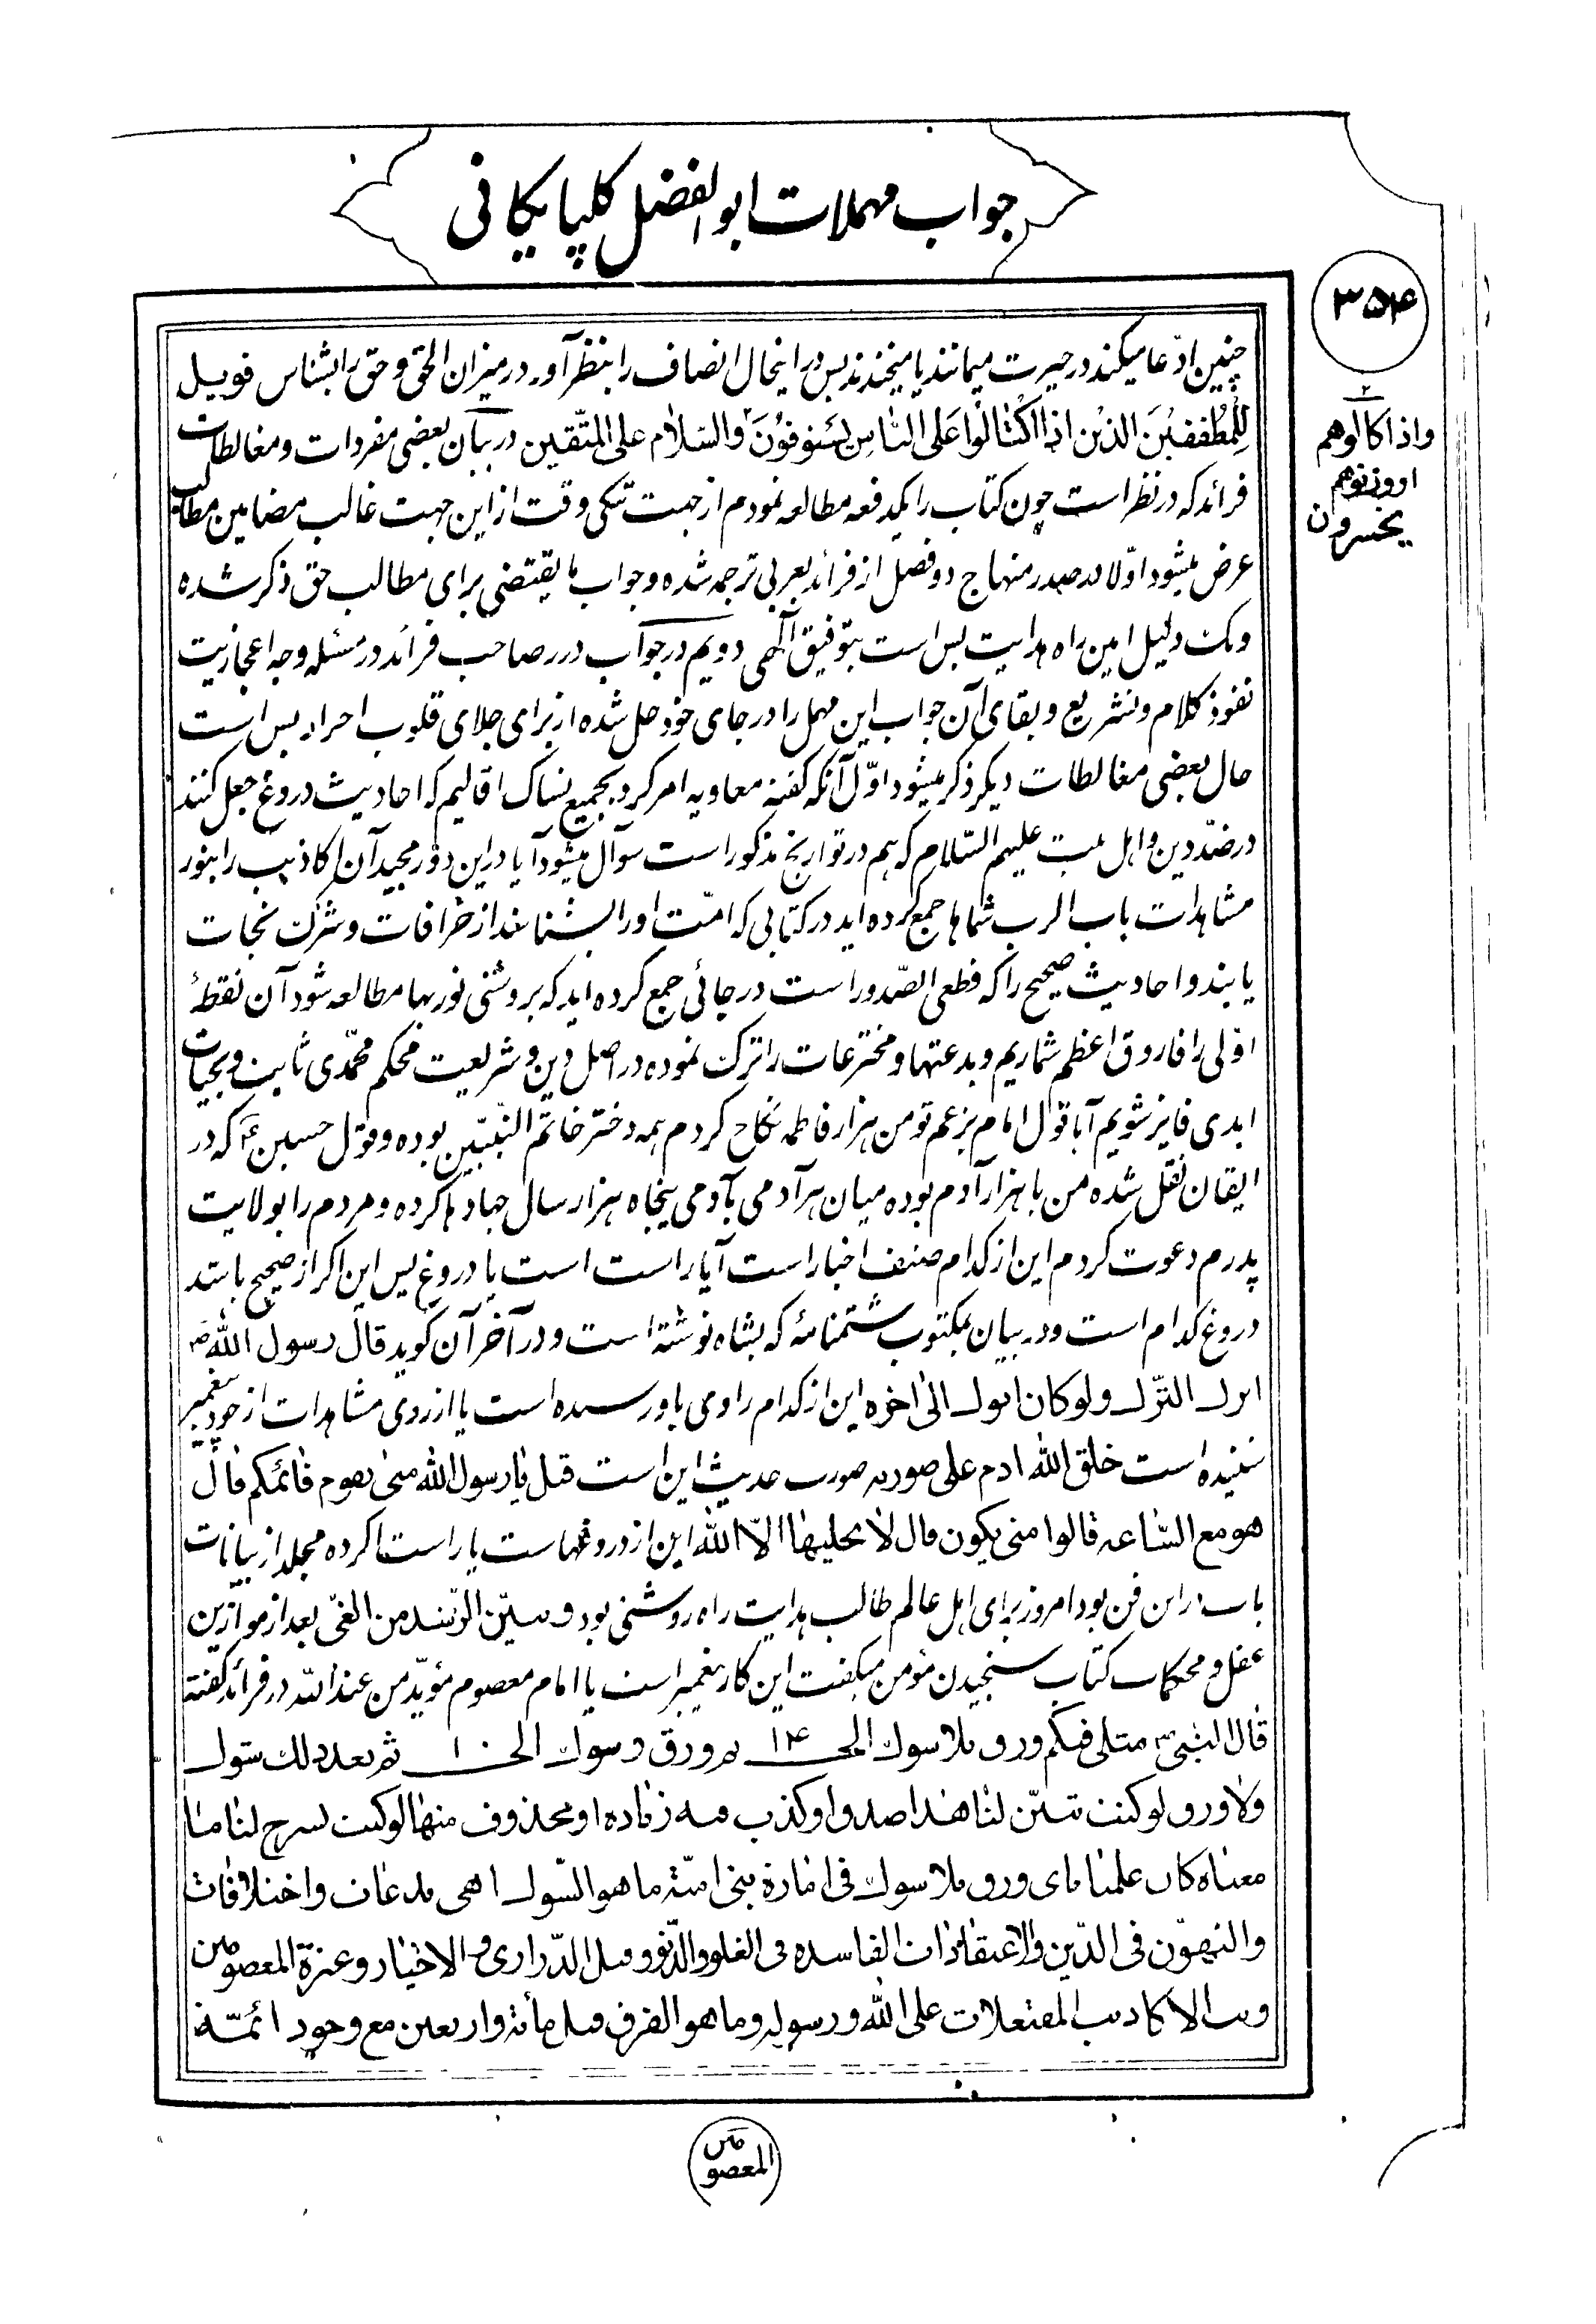 جواب مهملات ابوالفضل کلپایکانی
۳۵۴
چنین ادّعا میکند در حیرت میمانند یا میخندند بس در اینحال انصاف را بنظر آور در میزان الحق و حق را بشناس فویل
للمطففین الذین اذا اکتالوا علی الناس یستوفون و السّلام علی المتّقین در بیان بعضی مفردات و مغالطات
۲
واذا کالوهم
اووزنوهم
یخسرون
فرائد که در نظر است چون کتاب را یکدفعه مطالعه نمودم از جهت تنکی وقت از این جهت غالب مضامین مطالب
عرض میشود اوّلا در صدر منهاج دو فصل از فرائد بعربی ترجمه شده و جواب ما یقتضی برای مطالب حق ذکر شده
دلیل امین راه هدایت بس است بتوفیق آلهی دویم در جواب درر صاحب فرائد در مسئله وجه اعجازیت
نفوذ کلام و تشریع و بقای آن جواب این مهمل را در جای خود حل شده از برای جلای قلوب احرار بس است
حال بعضی مغالطات دیکر ذکر میشود اوّل آنکه کفته معاویه امر کرد بجمیع نساک اقالیم که احادیث دروغ جعل کنند
در ضدّ دین و اهل بیت علیهم السّلام که هم در تواریخ مذکور است سوآل میشود آیا در این دور مجید آن اکاذیب را بنور
مشاهدات باب الرب شماها جمع کرده اید در کتابی که امّت او را بشناسند از خرافات و شرک نجات
یابند و احادیث صحیح را که قطعی الصّدور است در جائی جمع کرده اید که بروشنی نور بها مطالعه شود آن نقطهٔ
اولی را فاروق اعظم شماریم و بدعتها و مخترعات را ترک نموده در اصل دین و شریعت محکم محمّدی ثابت و بحیات
ابدی فایز شویم آیا قول امام بزعم تو من هزار فاطمه نکاح کردم همه دختر خاتم النّبیّین بوده و قول حسین ع که در
ایقان نقل شده من با هزار آدم بوده میان هر آدمی بآدمی پنجاه هزار سال جهادها کرده و مردم را بولایت
پدرم دعوت کردم این از کدام صنف اخبار است آیا راست است یا دروغ پس این اکر از صحیح باشد
دروغ کدام است و در بیان بمکتوب شتمنامهٔ که بشاه نوشته است و در آخر آن کوید قال رسول الله ص
اترک الترک و لو کان ابوک الی اخره این از کدام راوی باو رسیده است یا از روی مشاهدات از خود پیغمبر
شنیده است خلق الله ادم علی صورته صورت حدیث این است قیل یا رسول الله متی یقوم قائمکم قال
هو مع السّاعه قالوا متی یکون قال لا یجلیها الّا الله این از دروغهاست یا راست اکرده مجلد از بیانات
باب در این فن بود امروز برای اهل عالم طالب هدایت راه روشنی بود و تبیّن الرّشد من الغیّ بعد از موازین
عقل و محکمات کتاب سنجیدن مؤمن میکفت این کار پیغمبر است یا امام معصوم مؤیّد من عند الله در فرائد کفته
قال النبی ص مثلی فیکم ورق بلا شوک الی ۱۴ ثم ورق و شوک الی ۱۰ ثم بعد ذلک شوک
ولا ورق لو کنت تبیّن لنا هذا صدق او کذب فیه زیاده او محذوف منها لو کنت تشرح لنا ما
معناه کان علمنا بای ورق بلا شوک فی امارة بنی امیّة ما هو الشّوک اهی بدعات و اختلافات
والتهوّن فی الدّین والاعتقادات الفاسده فی الغلو والدّنو وقتل الدّراری والاخیار و عترة المعصومین
وبث الاکاذیب المفتعلات علی الله و رسوله وما هو الفرق قبل مأتة و اربعین مع وجود ائمّة
المعصومین